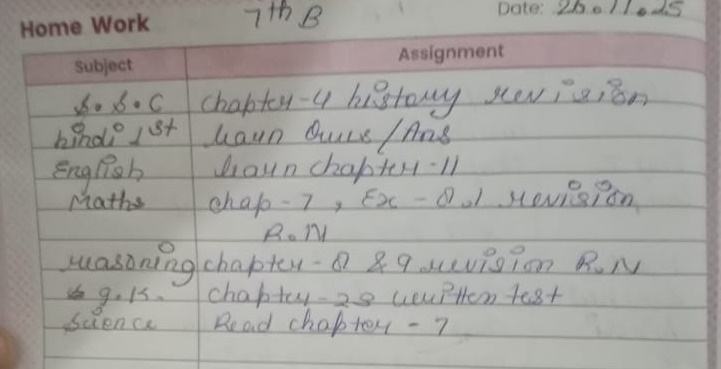 Home Work 7th B Date: 26.11.25
Subject Assignment
S.S.C chapter-4 history revision
hindi 1st learn Ques/Ans
English learn chapter-11
Maths chap-7, Ex-8.1 revision
R.N
reasoning chapter-8 & 9 revision R.N
g.k. chapter-28 written test
Science Read chapter-7